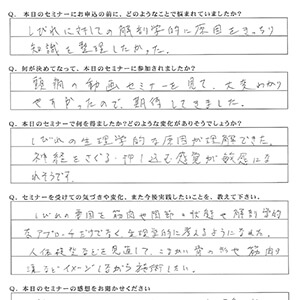 Q. 本日のセミナーにお申込の前に、どのようなことで悩まれていましたか?
しびれに対しての解剖学的に原因をきっちり
知識を整理したかった。
Q. 何が決めてなって、本日のセミナーに参加されましたか?
頭痛の動画セミナーを見て、大変わかり
やすかったので、期待してきました。
Q. 本日のセミナーで何を得ましたか?どのような変化がありそうでしょうか?
しびれの生理学的な原因が理解できた。
神経をさぐる・押し込む感覚が敏感にな
れそうです。
Q. セミナーを受けての気づきや変化、また今後実践したいことを、教えて下さい。
しびれの原因を筋肉や関節の状態や解剖学的
なアプローチだけでなく、生理学的に考えるようになれた。
人体模型などを見直して、こまかい骨の形や筋肉の
流などイメージしながら施術したい。
Q. 本日のセミナーの感想をお聞かせください